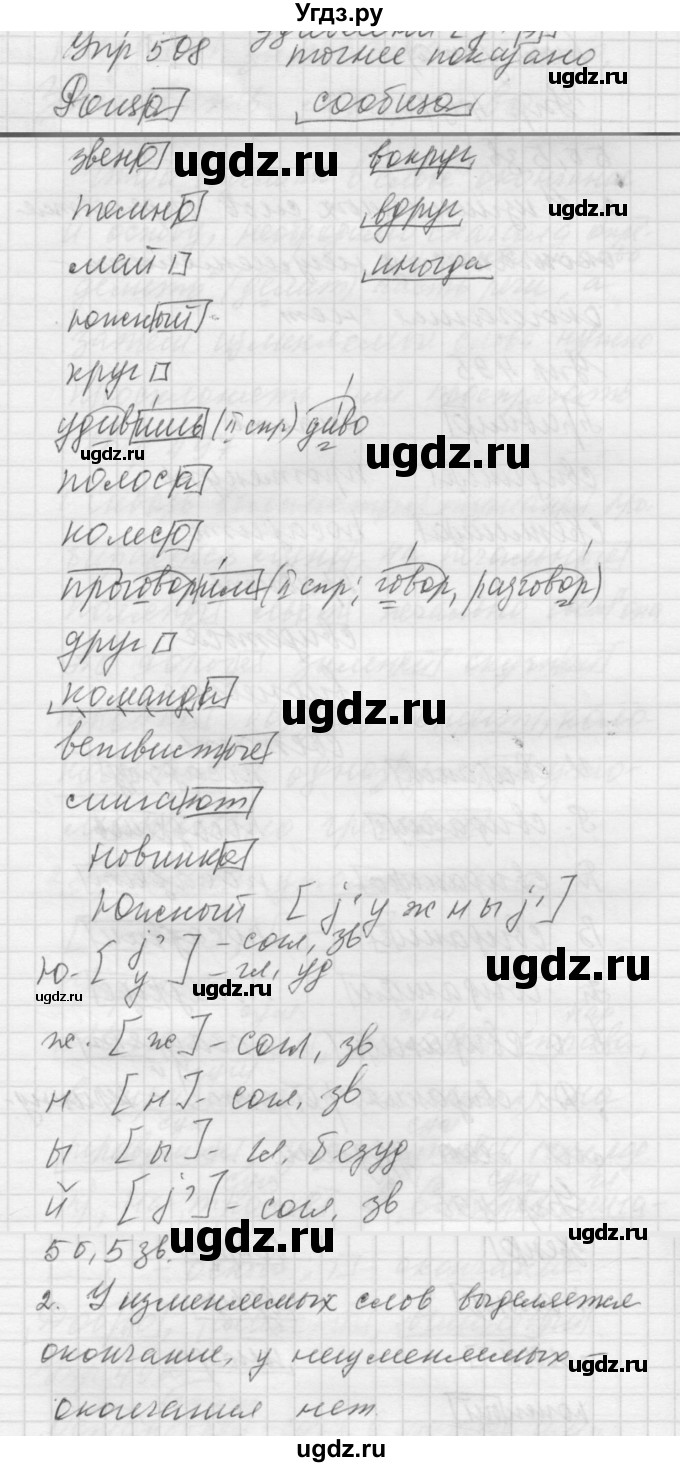 Угдз.ру
Упр 508 точнее показано
ugdz.ru
Роща сообща
ugdz.ru
звено вокруг
ugdz.ru
темно вдруг
ugdz.ru
май иногда
южный
круг
удивишь (II спр) диво
ugdz.ru
ugdz.ru
полоса
колесо
проговорили (II спр; говор, разговор)
друг
команда
ugdz.ru
ветвистые
сшивают
ugdz.ru
новинка
Южный [j' у ж н ы j']
Ю- [j' - согл, зв
у] - гл, уд
ugdz.ru
ugdz.ru
ugdz.ru
ж. [ж] - согл, зв
н [н] - согл, зв
ы [ы] - гл, безуд
й [j'] - согл, зв
5 б, 5 зв.
ugdz.ru
ugdz.ru
2. У изменяемых слов выделяется
окончание, у неизменяемых -
ugdz.ru
окончания нет.
ugdz.ru